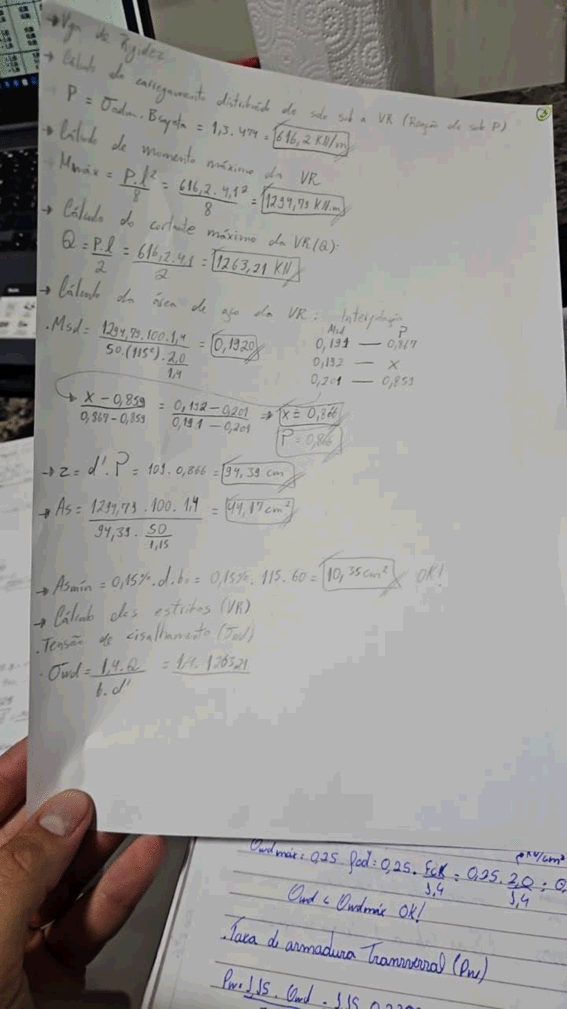 → Viga de Rigidez
→ Cálculo do carregamento distribuído do solo sob a VR (Reação do solo P)
P = σadm. Bsapata = 1,3.474 = 616,2 KN/m
②
→ Cálculo de momento máximo da VR
Mmáx = P.l²/8 = 616,2.4,1²/8 = 1294,79 KN.m
→ Cálculo do cortante máximo da VR(Q):
Q = P.l/2 = 616,2.4,1/2 = 1263,21 KN
→ Cálculo da área de aço da VR: Interpolação
.Msd = 1294,79.100.1,4/50.(115²).2,0/1,4 = 0,1920
Msd P
0,191 — 0,867
0,192 — x
0,201 — 0,859
→ x - 0,859/0,867 - 0,859 = 0,192 - 0,201/0,191 - 0,201 ⇒ x = 0,866
P = 0,866
→ z = d'. P = 109. 0,866 = 94,39 cm
→ As = 1294,79.100.1,4/94,39.50/1,15 = 44,17 cm²
→ Asmín = 0,15%.d.b = 0,15%. 115.60 = 10,35 cm² OK!
→ Cálculo dos estribos (VR)
.Tensão de cisalhamento (σwd)
. σwd = 1,4.Q/b.d' = 1,4.126321
σwdmáx = 0,25. fcd = 0,25. fck/1,4 = 0,25.2,0/1,4 = 0,
KN/cm²
σwd < σwdmáx OK!
.Taxa de armadura Transversal (Pw)
Pw = 1,15. σwd